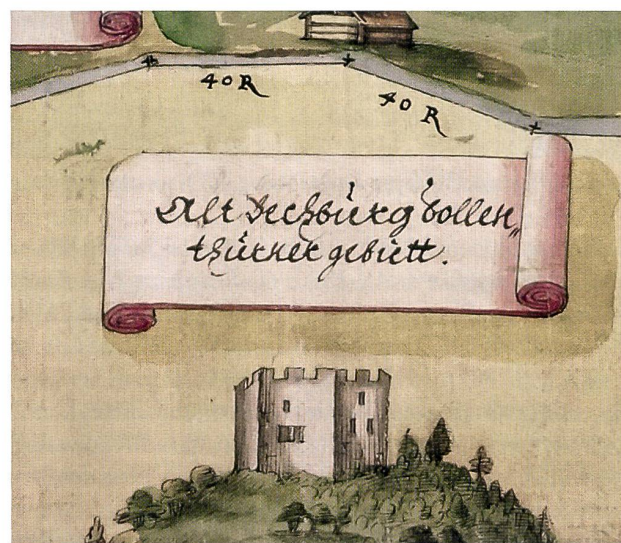 40R
40R
Alt Bechbùrg Sollen„
thùrner gebiett.